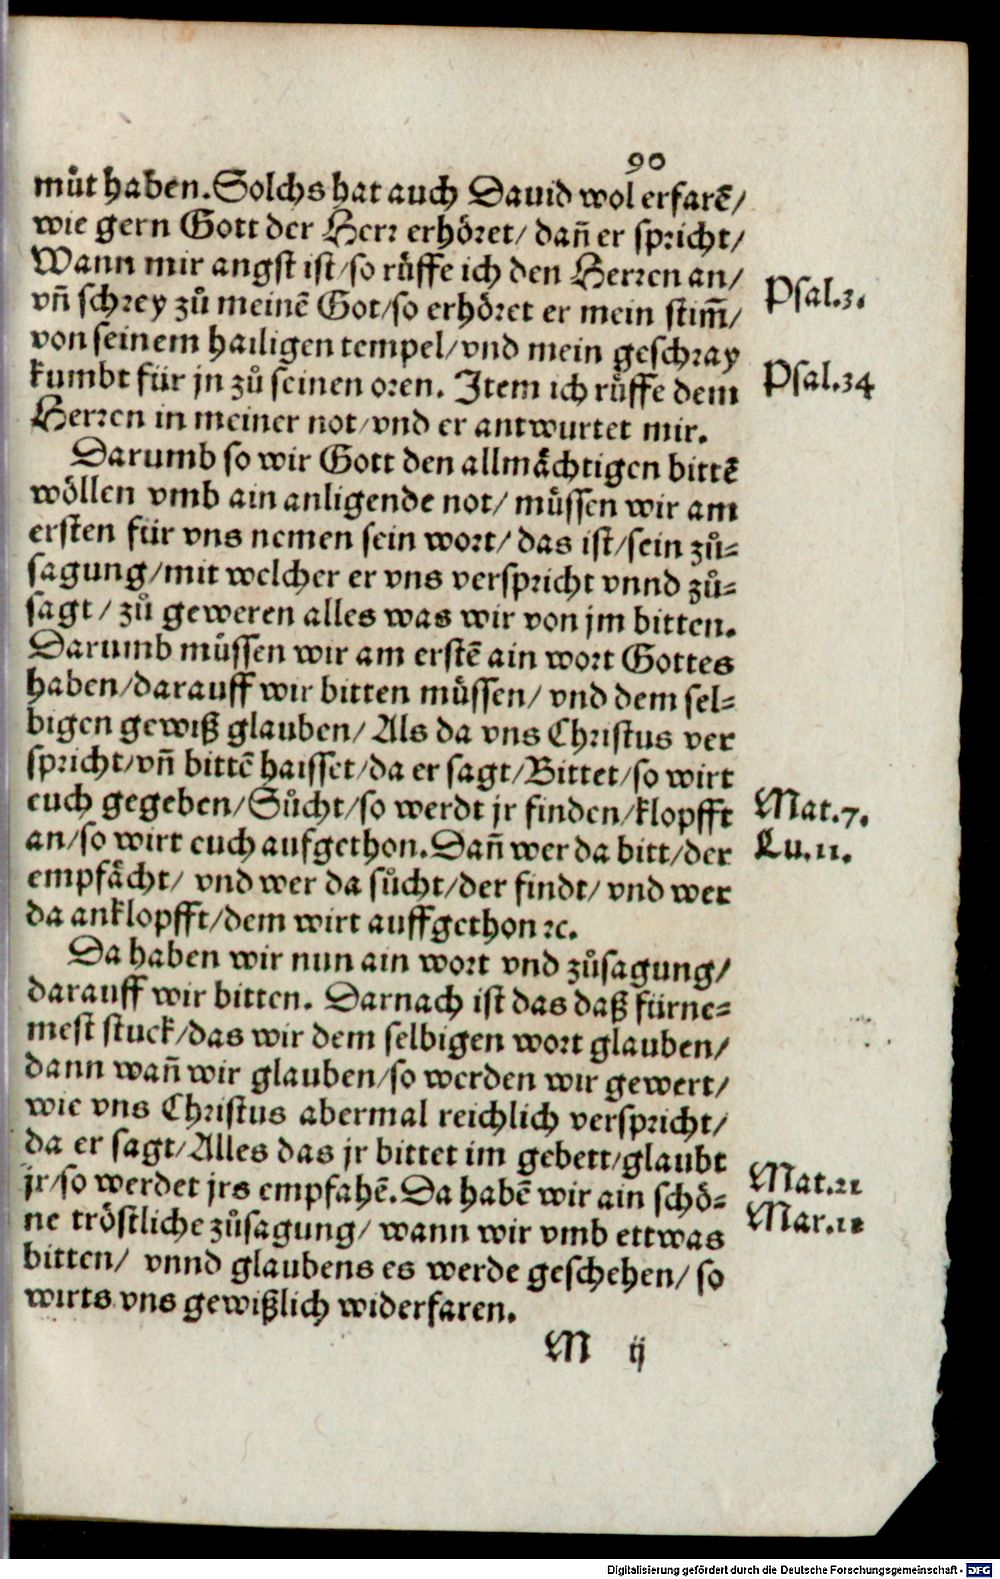 90
můt haben. Solchs hat auch Dauid wol erfarē/
wie gern Gott der Herr erhöret/ dañ er spricht/
Wann mir angst ist/so rüffe ich den Herren an/
vñ schrey zů meinē Got/so erhöret er mein stim̄/
von seinem hailigen tempel/vnd mein geschray
kumbt für jn zů seinen oren. Item ich rüffe dem
Herren in meiner not/vnd er antwurtet mir.
Psal.3.
Psal.34
Darumb so wir Gott den allmächtigen bittē
wöllen vmb ain anligende not/ müssen wir am
ersten für vns nemen sein wort/ das ist/sein zů=
sagung/mit welcher er vns verspricht vnnd zů=
sagt / zů geweren alles was wir von jm bitten.
Darumb müssen wir am erstē ain wort Gottes
haben/darauff wir bitten müssen/ vnd dem sel=
bigen gewiß glauben/ Als da vns Christus ver
spricht/vñ bittē haisset/da er sagt/Bittet/so wirt
euch gegeben/Sůcht/so werdt jr finden/klopfft
an/so wirt euch aufgethon. Dañ wer da bitt/der
empfächt/ vnd wer da sůcht/der findt/ vnd wer
da anklopfft/dem wirt auffgethon ꝛc.
Mat.7.
Lu.11.
Da haben wir nun ain wort vnd zůsagung/
darauff wir bitten. Darnach ist das daß fürne=
mest stuck/das wir dem selbigen wort glauben/
dann wañ wir glauben/so werden wir gewert/
wie vns Christus abermal reichlich verspricht/
da er sagt/Alles das jr bittet im gebett/glaubt
jr/so werdet jrs empfahē. Da habē wir ain schö=
ne tröstliche zůsagung/ wann wir vmb ettwas
bitten/ vnnd glaubens es werde geschehen/ so
wirts vns gewißlich widerfaren.
Mat.21
Mar.11
M ij
Digitalisierung gefördert durch die Deutsche Forschungsgemeinschaft - DFG